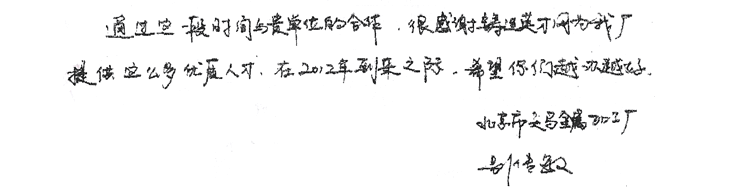 通过这一段时间与贵单位的合作，很感谢铸造英才网为我厂
提供这么多优质人才，在2012年到来之际，希望你们越办越好。
北京市天马金属加工厂